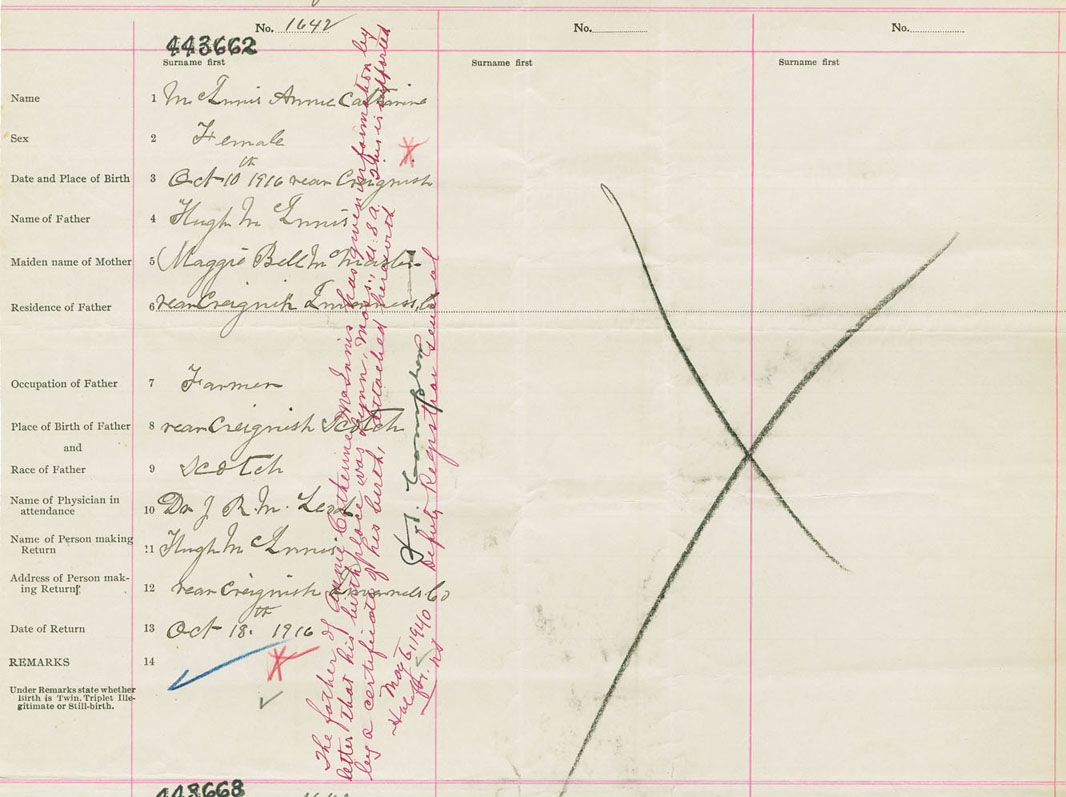 No. 1642
No.
No.
443662
Surname first
Surname first
Surname first
Name 1 McInnis Annie Catherine
Sex 2 Female
Date and Place of Birth 3 Oct 10th 1916 rear Creignish
Name of Father 4 Hugh McInnis
Maiden name of Mother 5 Maggie Bell McMaster
Residence of Father 6 rear Creignish Inverness Co
Occupation of Father 7 Farmer
Place of Birth of Father 8 rear Creignish Scotch
and
Race of Father 9 Scotch
Name of Physician in
attendance 10 Dr J. R. M.
Name of Person making
Return 11 Hugh McInnis
Address of Person mak-
ing Return 12 rear Creignish Inverness Co
Date of Return 13 Oct 18th 1916
REMARKS 14
Under Remarks state whether
Birth is Twin, Triplet Ille-
gitimate or Still-birth.
The father of Annie Catherine McInnis has given information by
letter that his birthplace was Lynn, Mass., U.S.A. This is supported
by a certificate of his birth, attached herewith
Deputy Registrar General
May 6, 1940
443668